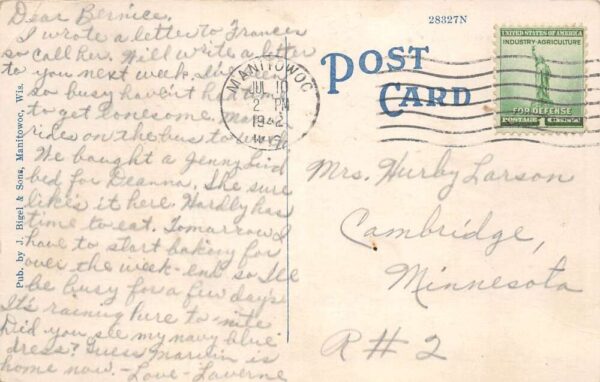 Dear Bernice.
I wrote a letter to Frances
so call her. Will write a letter
to you next week. I've been
so busy haven't had time
to get lonesome. Mar
rides on the bus to
We bought a Jenny Lind
bed for Deanna. She sure
likes it here. Hardly has
time to eat. Tomorrow I
have to start baking for
over the week-end so I'll
be busy for a few days
It's raining here to-nite
Did you see my navy blue
dress? Guess Marilin is
home now. - Love - Laverne
Pub. by J. Bigel & Sons, Manitowoc, Wis.
28327N
POST
CARD
MANITOWOC
JUL 10
2 PM
1942
WIS
UNITED STATES OF AMERICA
INDUSTRY-AGRICULTURE
FOR DEFENSE
POSTAGE 1 CENT
Mrs. Hurby Larson
Cambridge,
Minnesota
R#2